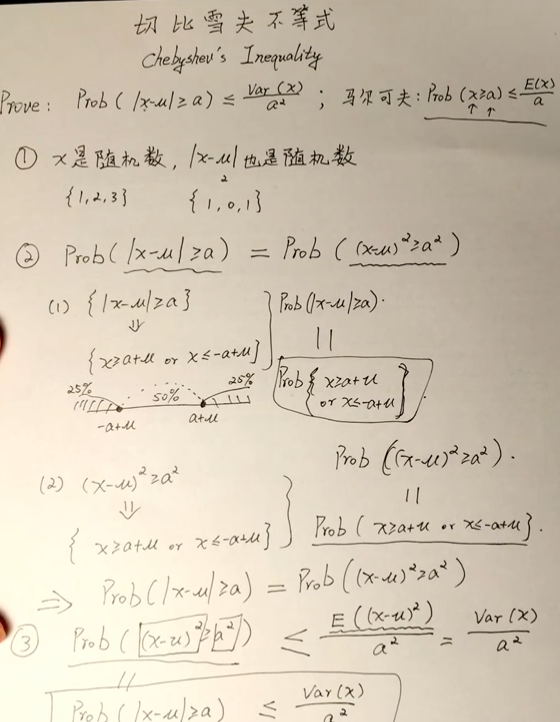 切比雪夫不等式
Chebyshev's Inequality
Prove: Prob(|x-μ|≥a) ≤ Var(x)/a² ; 马尔可夫: Prob(x≥a) ≤ E(x)/a
① x是随机数, |x-μ|也是随机数
2
{1,2,3} {1,0,1}
② Prob(|x-μ|≥a) = Prob((x-μ)²≥a²)
(1) {|x-μ|≥a}
⇓
{x≥a+μ or x≤-a+μ]
Prob(|x-μ|≥a).
||
Prob{x≥a+μ
or x≤-a+μ}
25% 50% 25%
-a+μ a+μ
(2) (x-μ)²≥a²
⇓
{x≥a+μ or x≤-a+μ}
Prob((x-μ)²≥a²).
||
Prob(x≥a+μ or x≤-a+μ}.
⇒ Prob(|x-μ|≥a) = Prob((x-μ)²≥a²)
③ Prob((x-μ)²≥a²) ≤ E((x-μ)²)/a² = Var(x)/a²
||
Prob(|x-μ|≥a) ≤ Var(x)/a²